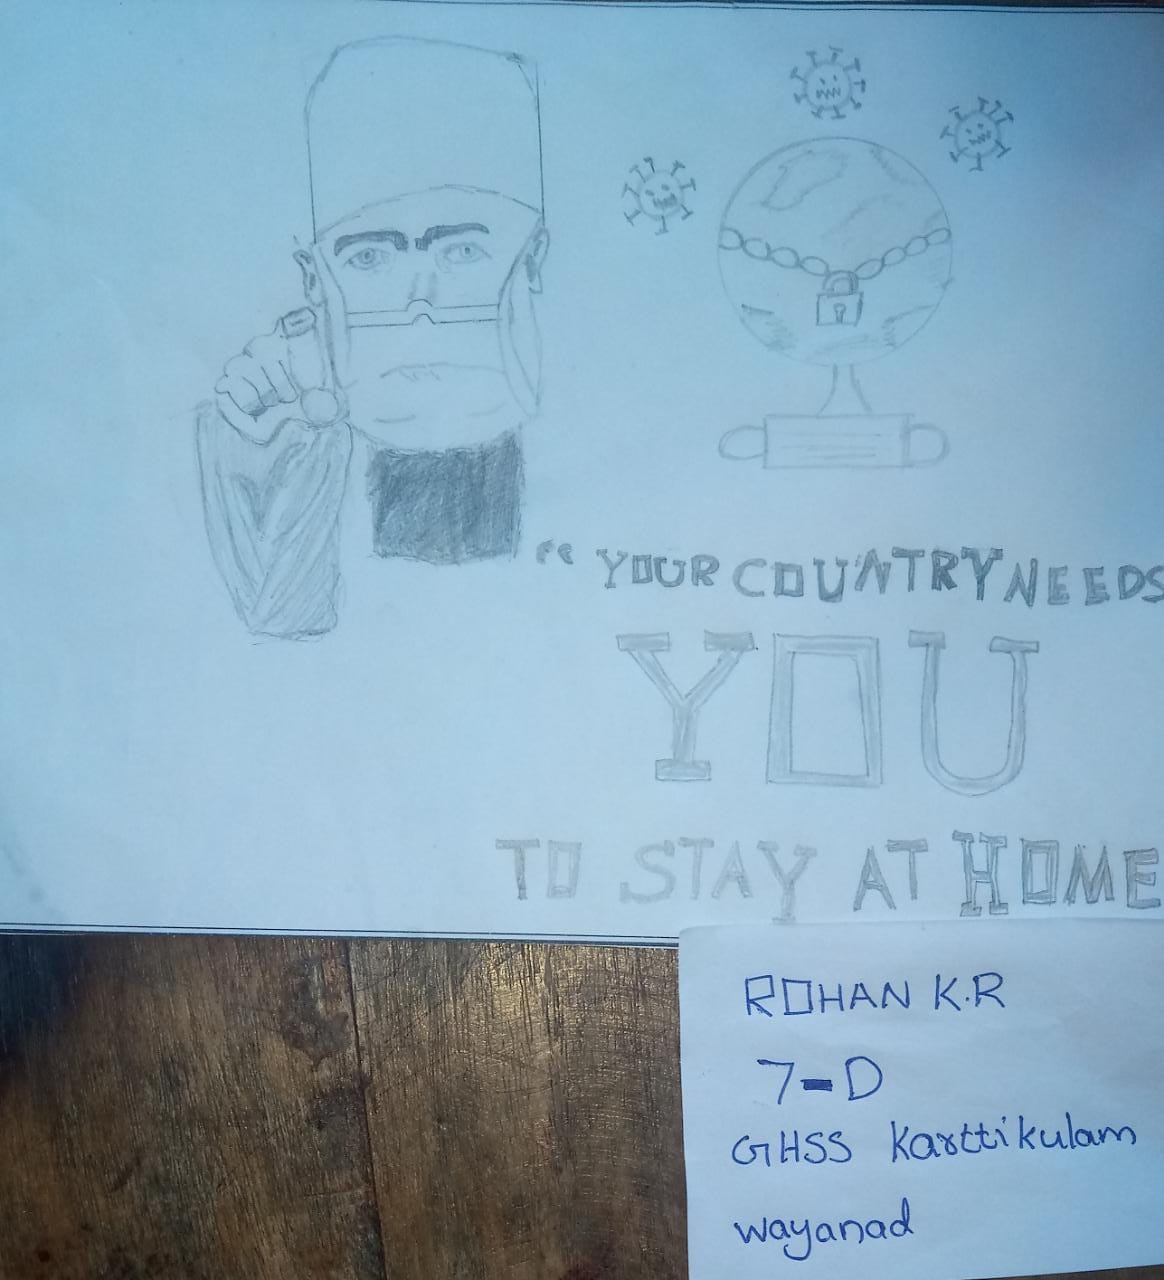 “ YOUR COUNTRY NEEDS
YOU
TO STAY AT HOME
ROHAN K.R
7-D
GHSS Karttikulam
Wayanad